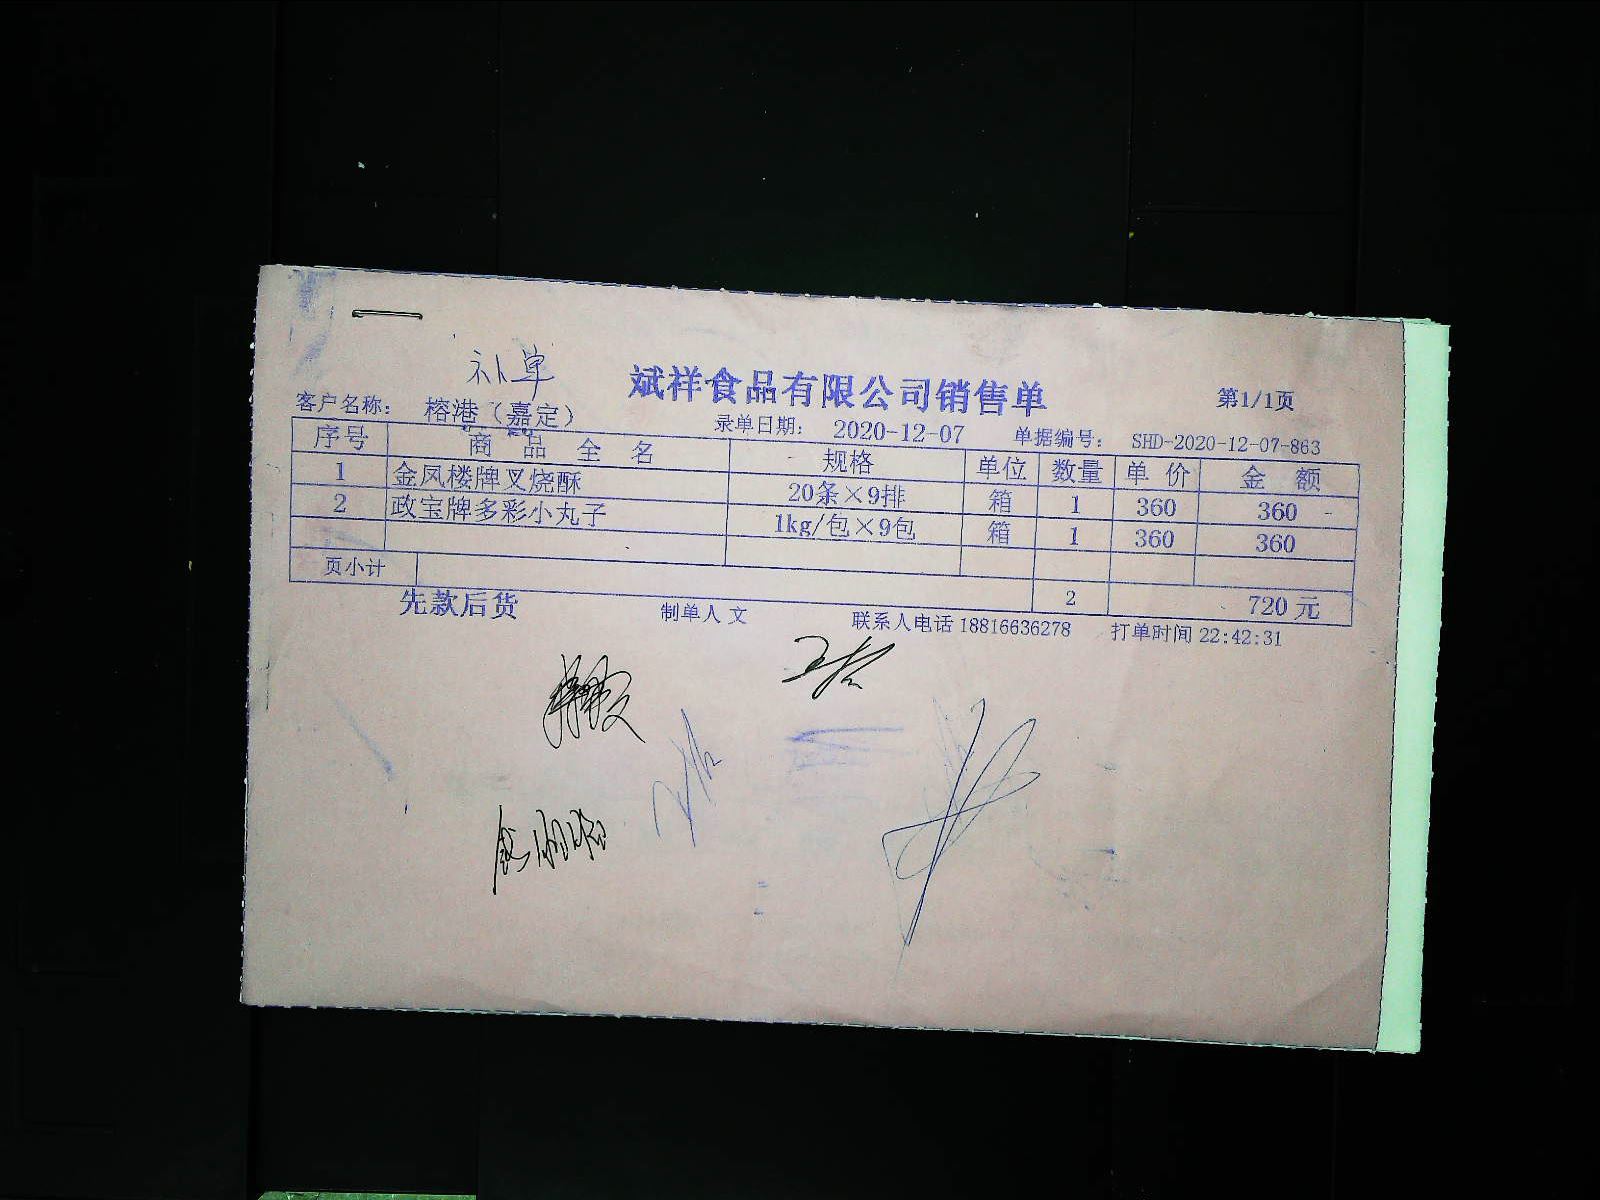 补单
斌祥食品有限公司销售单 第1/1页
客户名称： 榕港（嘉定） 录单日期： 2020-12-07 单据编号： SHD-2020-12-07-863
序号 商品全名 规格 单位 数量 单价 金额
1 金凤楼牌叉烧酥 20条×9排 箱 1 360 360
2 政宝牌多彩小丸子 1kg/包×9包 箱 1 360 360
页小计 2 720 元
先款后货 制单人 文 联系人电话 18816636278 打单时间 22:42:31